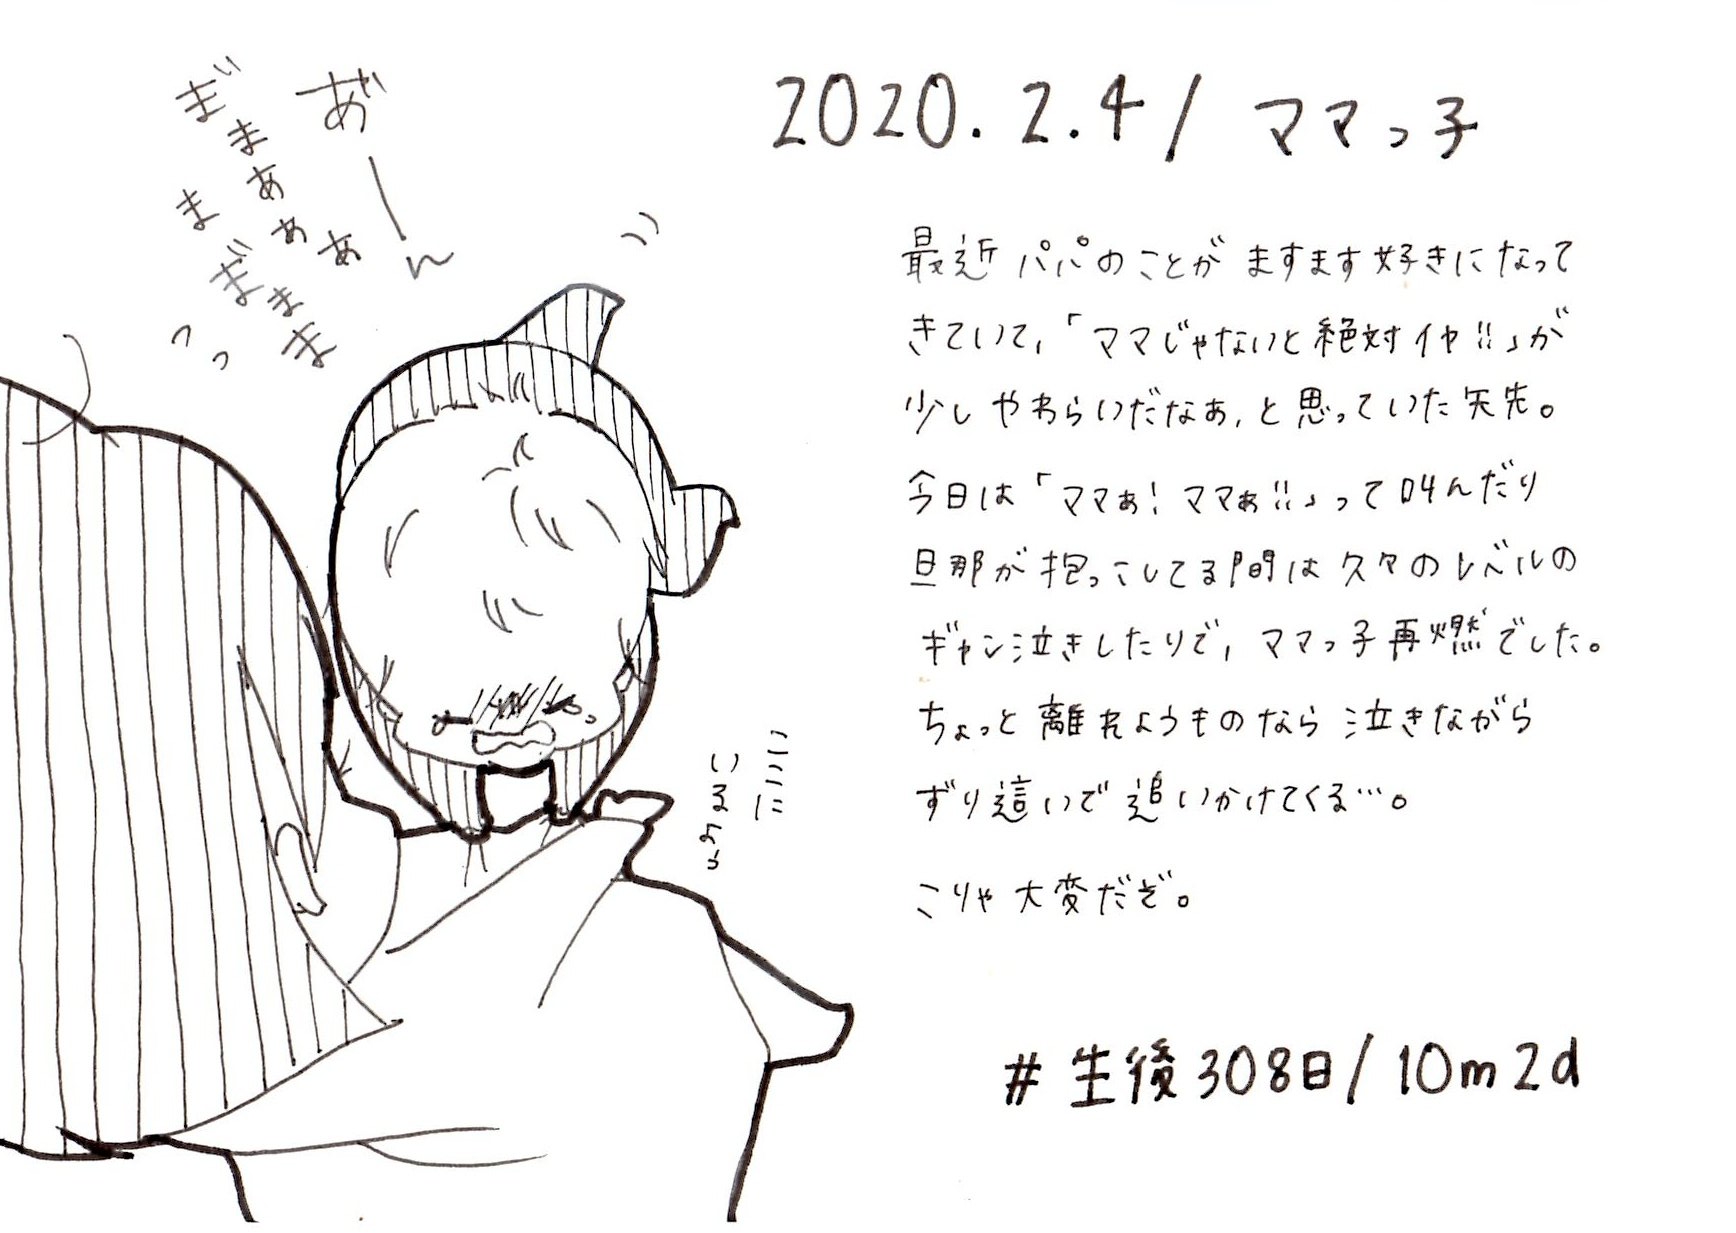 2020.2.4/ ママっ子
最近パパのことがますます好きになって
きていて、「ママじゃないと絶対イヤ!!」が
少しやわらいだなぁ、と思っていた矢先。
今日は「ママぁ!ママぁ!!」って叫んだり
旦那が抱っこしてる間は久々のレベルの
ギャン泣きしたりで、ママっ子再燃でした。
ちょっと離れようものなら泣きながら
ずり這いで追いかけてくる…。
こりゃ大変だぞ。
#生後308日/10m2d
あ゛ーん
ま゛まぁぁぁ
まま゛まま
っっ
ここに
いるよぅ